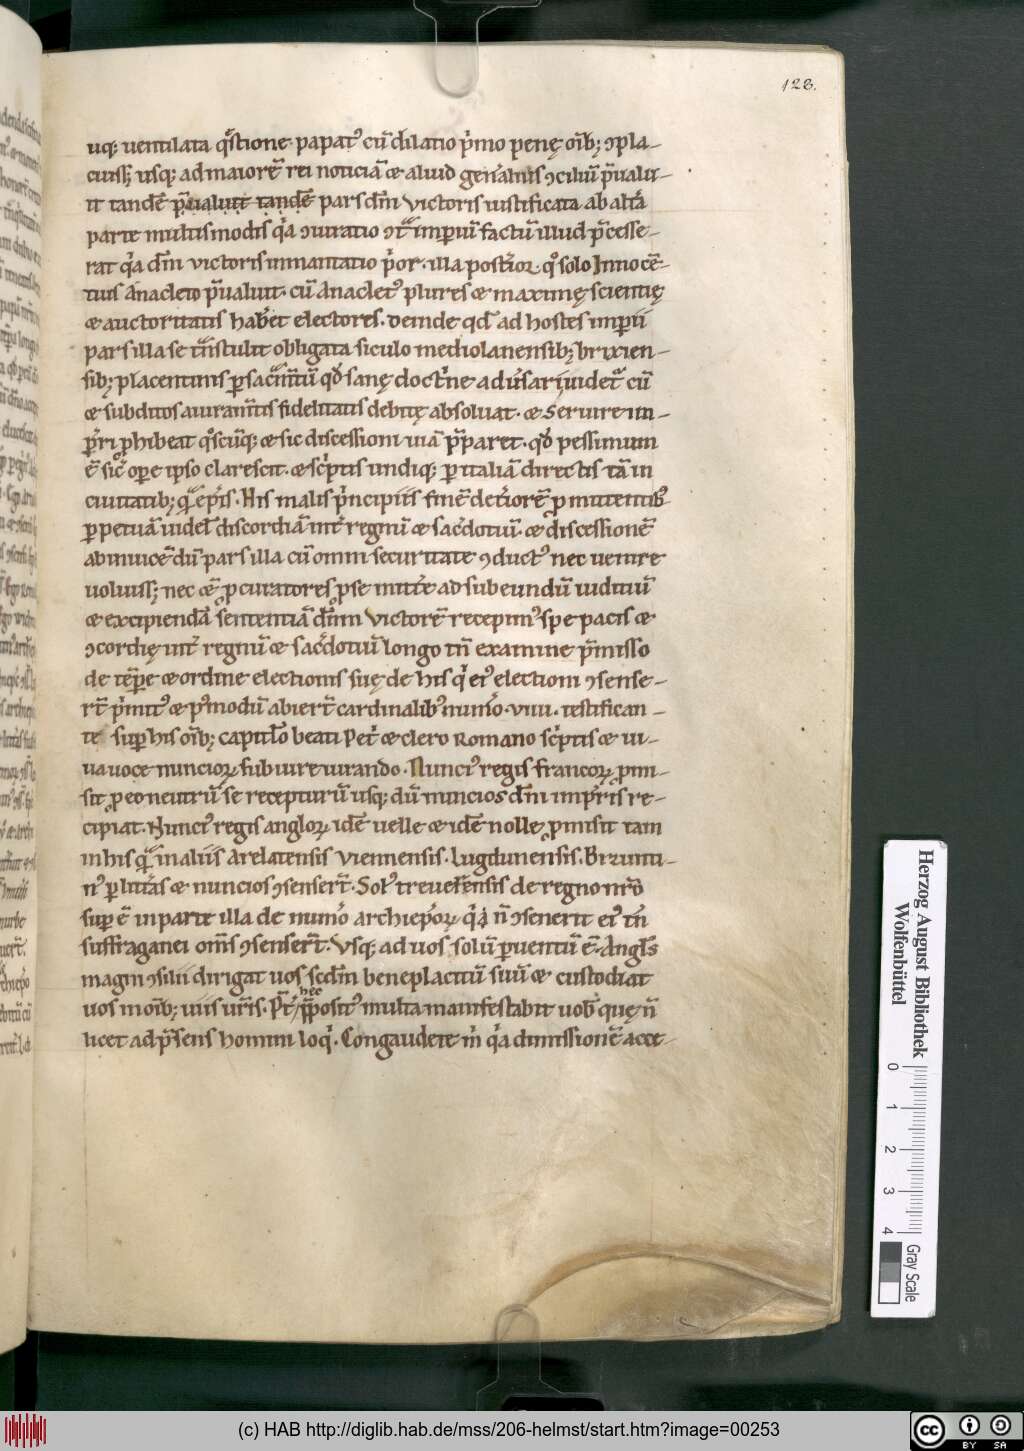 128.
uq; uentilata q̄stione papat᾽ cū dilatio p̄mo penę oīb; ↄpla-
cuiss; usq; ad maiorē rei noticiā & aliud genalius ↄciliū p̄ualu-
it tandē p̄ualuit tandē pars dn̄i victoris iustificata ab alt̄a
parte multis modis q̄a ↄiuratio ↄt̄ imp̄iū factū illud p̄cesse-
rat q̄a dn̄i victoris inmantatio p̄or. illa post̄ior. q̊ solo Innocē-
tius Anacleto p̄ualuit. cū Anaclet᾽ plures & maximę scientię
& auctoritatis hab̄et electores. deinde qđ ad hostes imp̄ii
pars illa se t̄nstulit obligata siculo mediolanensib; brixien-
sib; placentinis p̄ sac̄m̄tū qđ sanę doct̄ne aduersari uidet᾽ cū
& subditos a iuram̄tis fidelitatis debitę absoluat. & seruire im-
p̄ri p̄hibeat q̊scūq; & sic discessioni uiā p̄paret. qđ pessimum
ē sic̄ ope ipso clarescit. & sc̄ptis undiq; p̄ italiā directis tā in
ciuitatib; q̄ ep̄is. His malis p̄ncipiis finē det̄iorē p̄mittentib᾽
p̄petuā uidel̄ discordiā int̄ regnū & sac̄dotiū. & discessionē
abinuicē dū pars illa cū omni securitate ↄduct᾽ nec uenire
uoluiss; nec & p̄curatores p̄ se mitt̄e ad subeundū iuditiū
& excipiendā sententiā dn̄m victorē recepim᾽ spe pacis &
ↄcordię int̄ regnū & sac̄dotiū longo tn̄ examine p̄misso
de tēp̄e & ordine electionis suę de his q̄ ei᾽ electioni ↄsense-
rt̄ p̄mit᾽ & p᾽modū abiert̄ cardinalib᾽ num̄o. viiii. testifican-
te sup̄ his oīb; capitl̄o beati Pet̄ & clero Romano sc̄ptis & ui-
ua uoce nuncioꝝ sub iureiurando. Nunci᾽ regis francoꝝ p̄mi-
sit p̄ eo neutrū se recepturū usq; dū nuncios dn̄i imp̄ris re-
cipiat. Nunci᾽ regis angloꝝ idē uelle & idē nolle p̄misit tam
in his q̄ in aliis Arelatensis viennensis. lugdunensis. Bizunti-
n᾽ p̄ litt̄as & nuncios ↄsensert̄. Sol᾽ treuerensis de regno nr̄o
sup̄ ē in parte illa de num̄o archiep̄oꝝ q̄a n̄ ↄsenerit ei᾽ tn̄
suffraganei om̄s ↄsensert̄. Vsq; ad uos solū p̄uentū ē. Angl̄s
magni ↄsilii dirigat uos scdm̄ beneplacitū suū & custodiat
uos in oīb; uiis ur̄is. Pt̄ hec p̄posit᾽ multa manifestabit uob̄ quę n̄
licet ad p̄sens homini loq̄. Congaudete m̄ q̄a dimissionē acce-
Herzog August Bibliothek
Wolfenbüttel
0 1 2 3 4
Gray Scale
(c) HAB http://diglib.hab.de/mss/206-helmst/start.htm?image=00253
cc BY SA